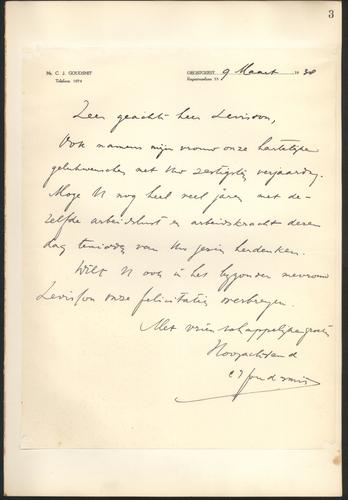 3
Mr. C. J. GOUDSMIT
Telefoon 1974
OEGSTGEEST 9 Maart 1938
Zeer geachte heer Levisson,
Ook namens mijn vrouw onze hartelijke
gelukwenschen met Uw zestigste verjaardag.
Moge U nog heel veel jaren met de-
zelfde arbeidslust en arbeidskracht dezen
dag temidden van Uw gezin herdenken.
Wilt U ook in het byzonder mevrouw
Levisson onze felicitaties overbrengen.
Met vriendschappelijke groeten
Hoogachtend
C J Goudsmit